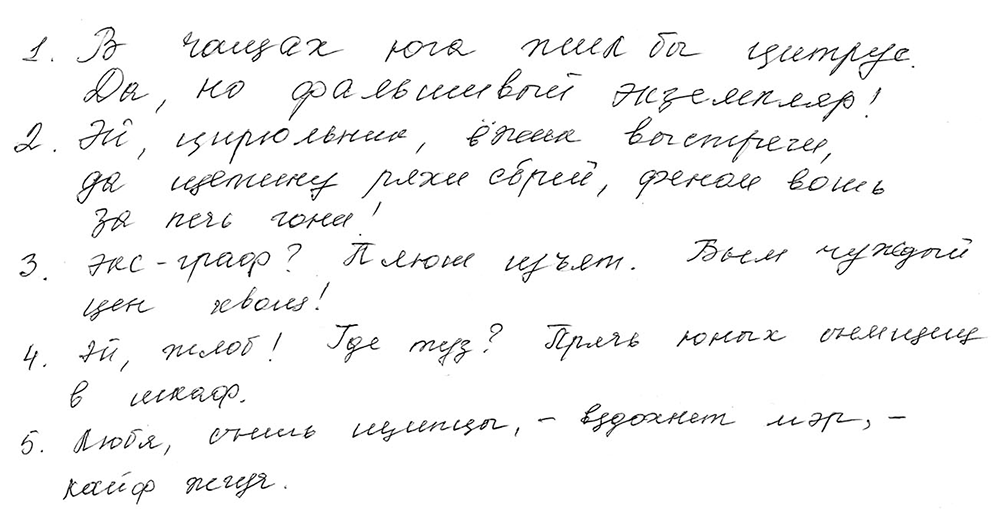 1. В чащах юга жил бы цитрус.
Да, но фальшивый экземпляр!
2. Эй, цирюльник, ёжик выстриги,
да щетину ряхи сбрей, феном вошь
за печь гони!
3. Экс-граф? Плюш изъят. Бьём чуждый
цен хвощ!
4. Эй, жлоб! Где туз? Прячь юных съёмщиц
в шкаф.
5. Любя, съешь щипцы, – вздохнёт мэр, –
кайф жгуч.